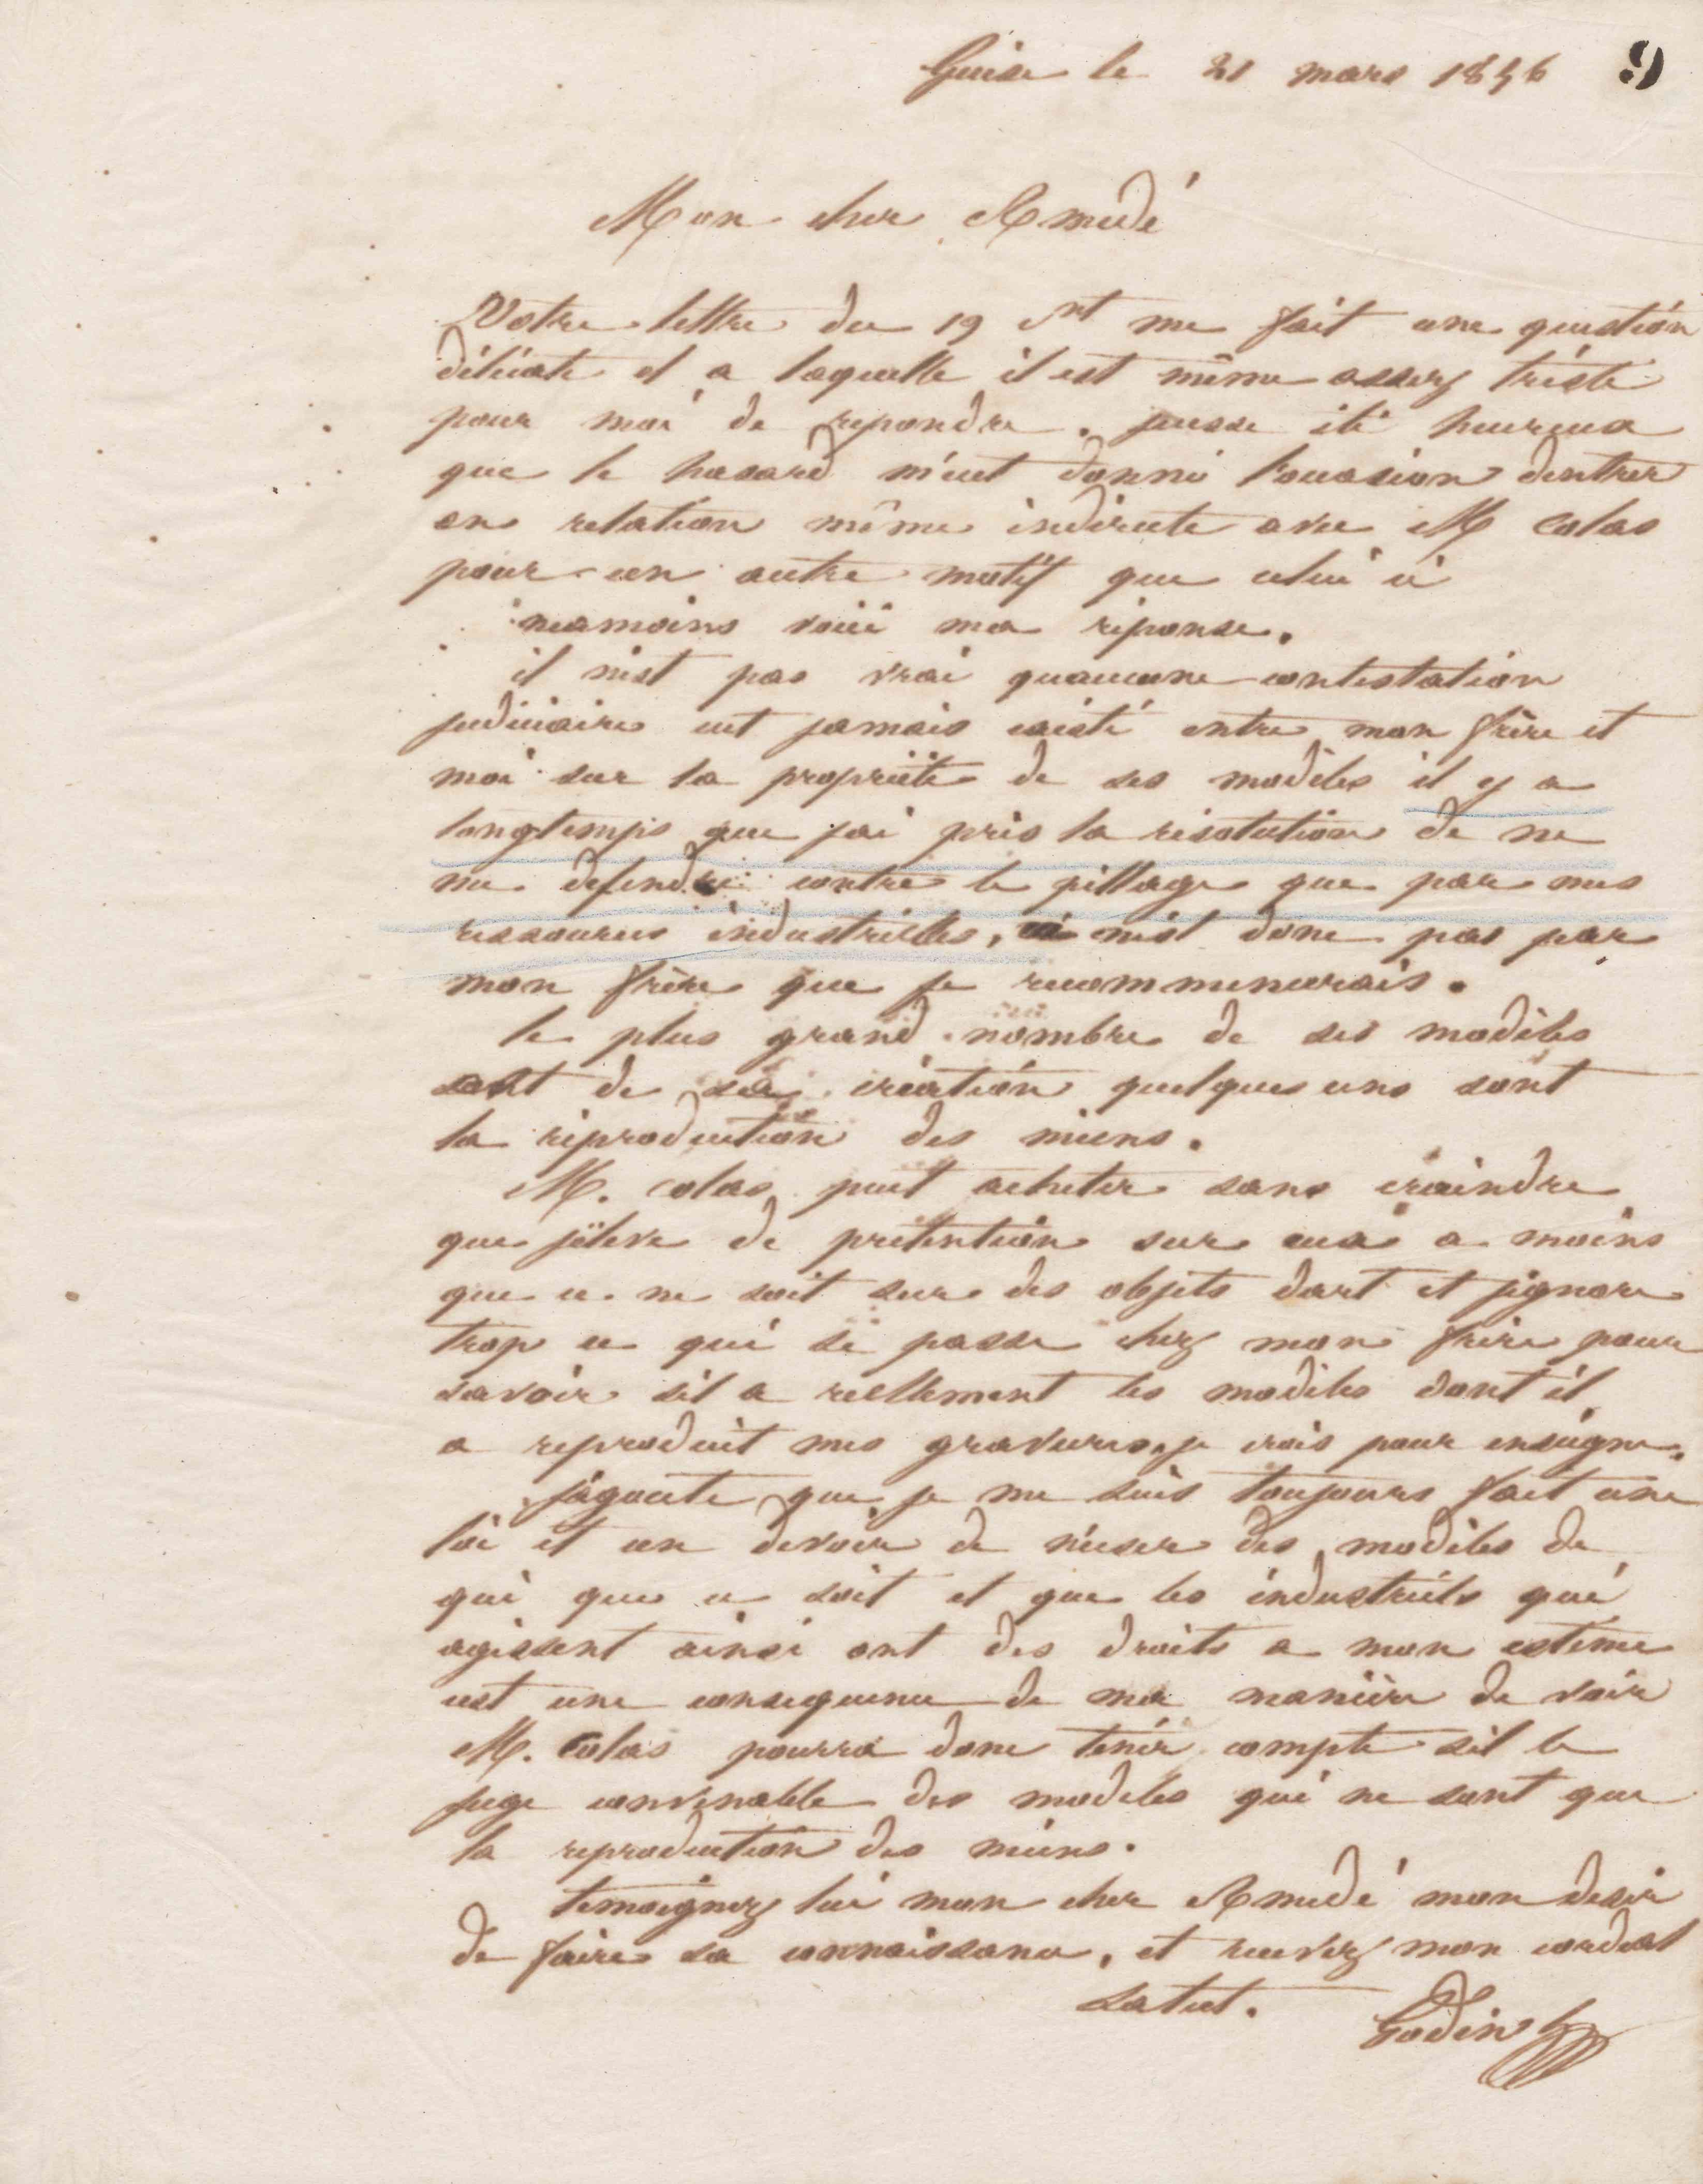 Guise le 21 mars 1856 9
Mon cher Amédé
Votre lettre du 19 ct me fait une question
délicate et a laquelle il est même assez triste
pour moi de repondre. jeusse été heureux
que le hasard m'eut donné l'occasion dentrer
en relation même indirecte avec M Colas
pour un autre motif que celui ci
neamoins voici ma réponse.
il n'est pas vrai quaucune contestation
judiciaire eut jamais existé entre mon frère et
moi sur la propriété de ses modèles il y a
longtemps que jai pris la résolution de ne
me defendre contre le pillage que par mes
ressources industrielles, ce n'est donc pas par
mon frère que je recommencerais.
le plus grand nombre de ses modèles
sont de sa création quelques uns sont
la réproduction des miens.
M. colas peut acheter sans craindre
que jéleve de prétention sur eux a moins
que ce ne soit sur des objets dart et jignore
trop ce qui se passe chez mon frère pour
savoir sil a reellement les modèles dont il
a reproduit mes gravures, je crois pour enseigne.
jàjoute que je me suis toujours fait une
loi et un devoir de n'user des modèles de
qui que ce soit et que les industriels qui
agissent ainsi ont des droits a mon estime
cest une consequence de ma manière de voir
M. Colas pourra donc tenir compte sil le
juge convenable des modeles qui ne sont que
la reproduction des miens.
temoignez lui mon cher Amédé mon desir
de faire sa connaissance, et recevez mon cordial
salut.
Godin